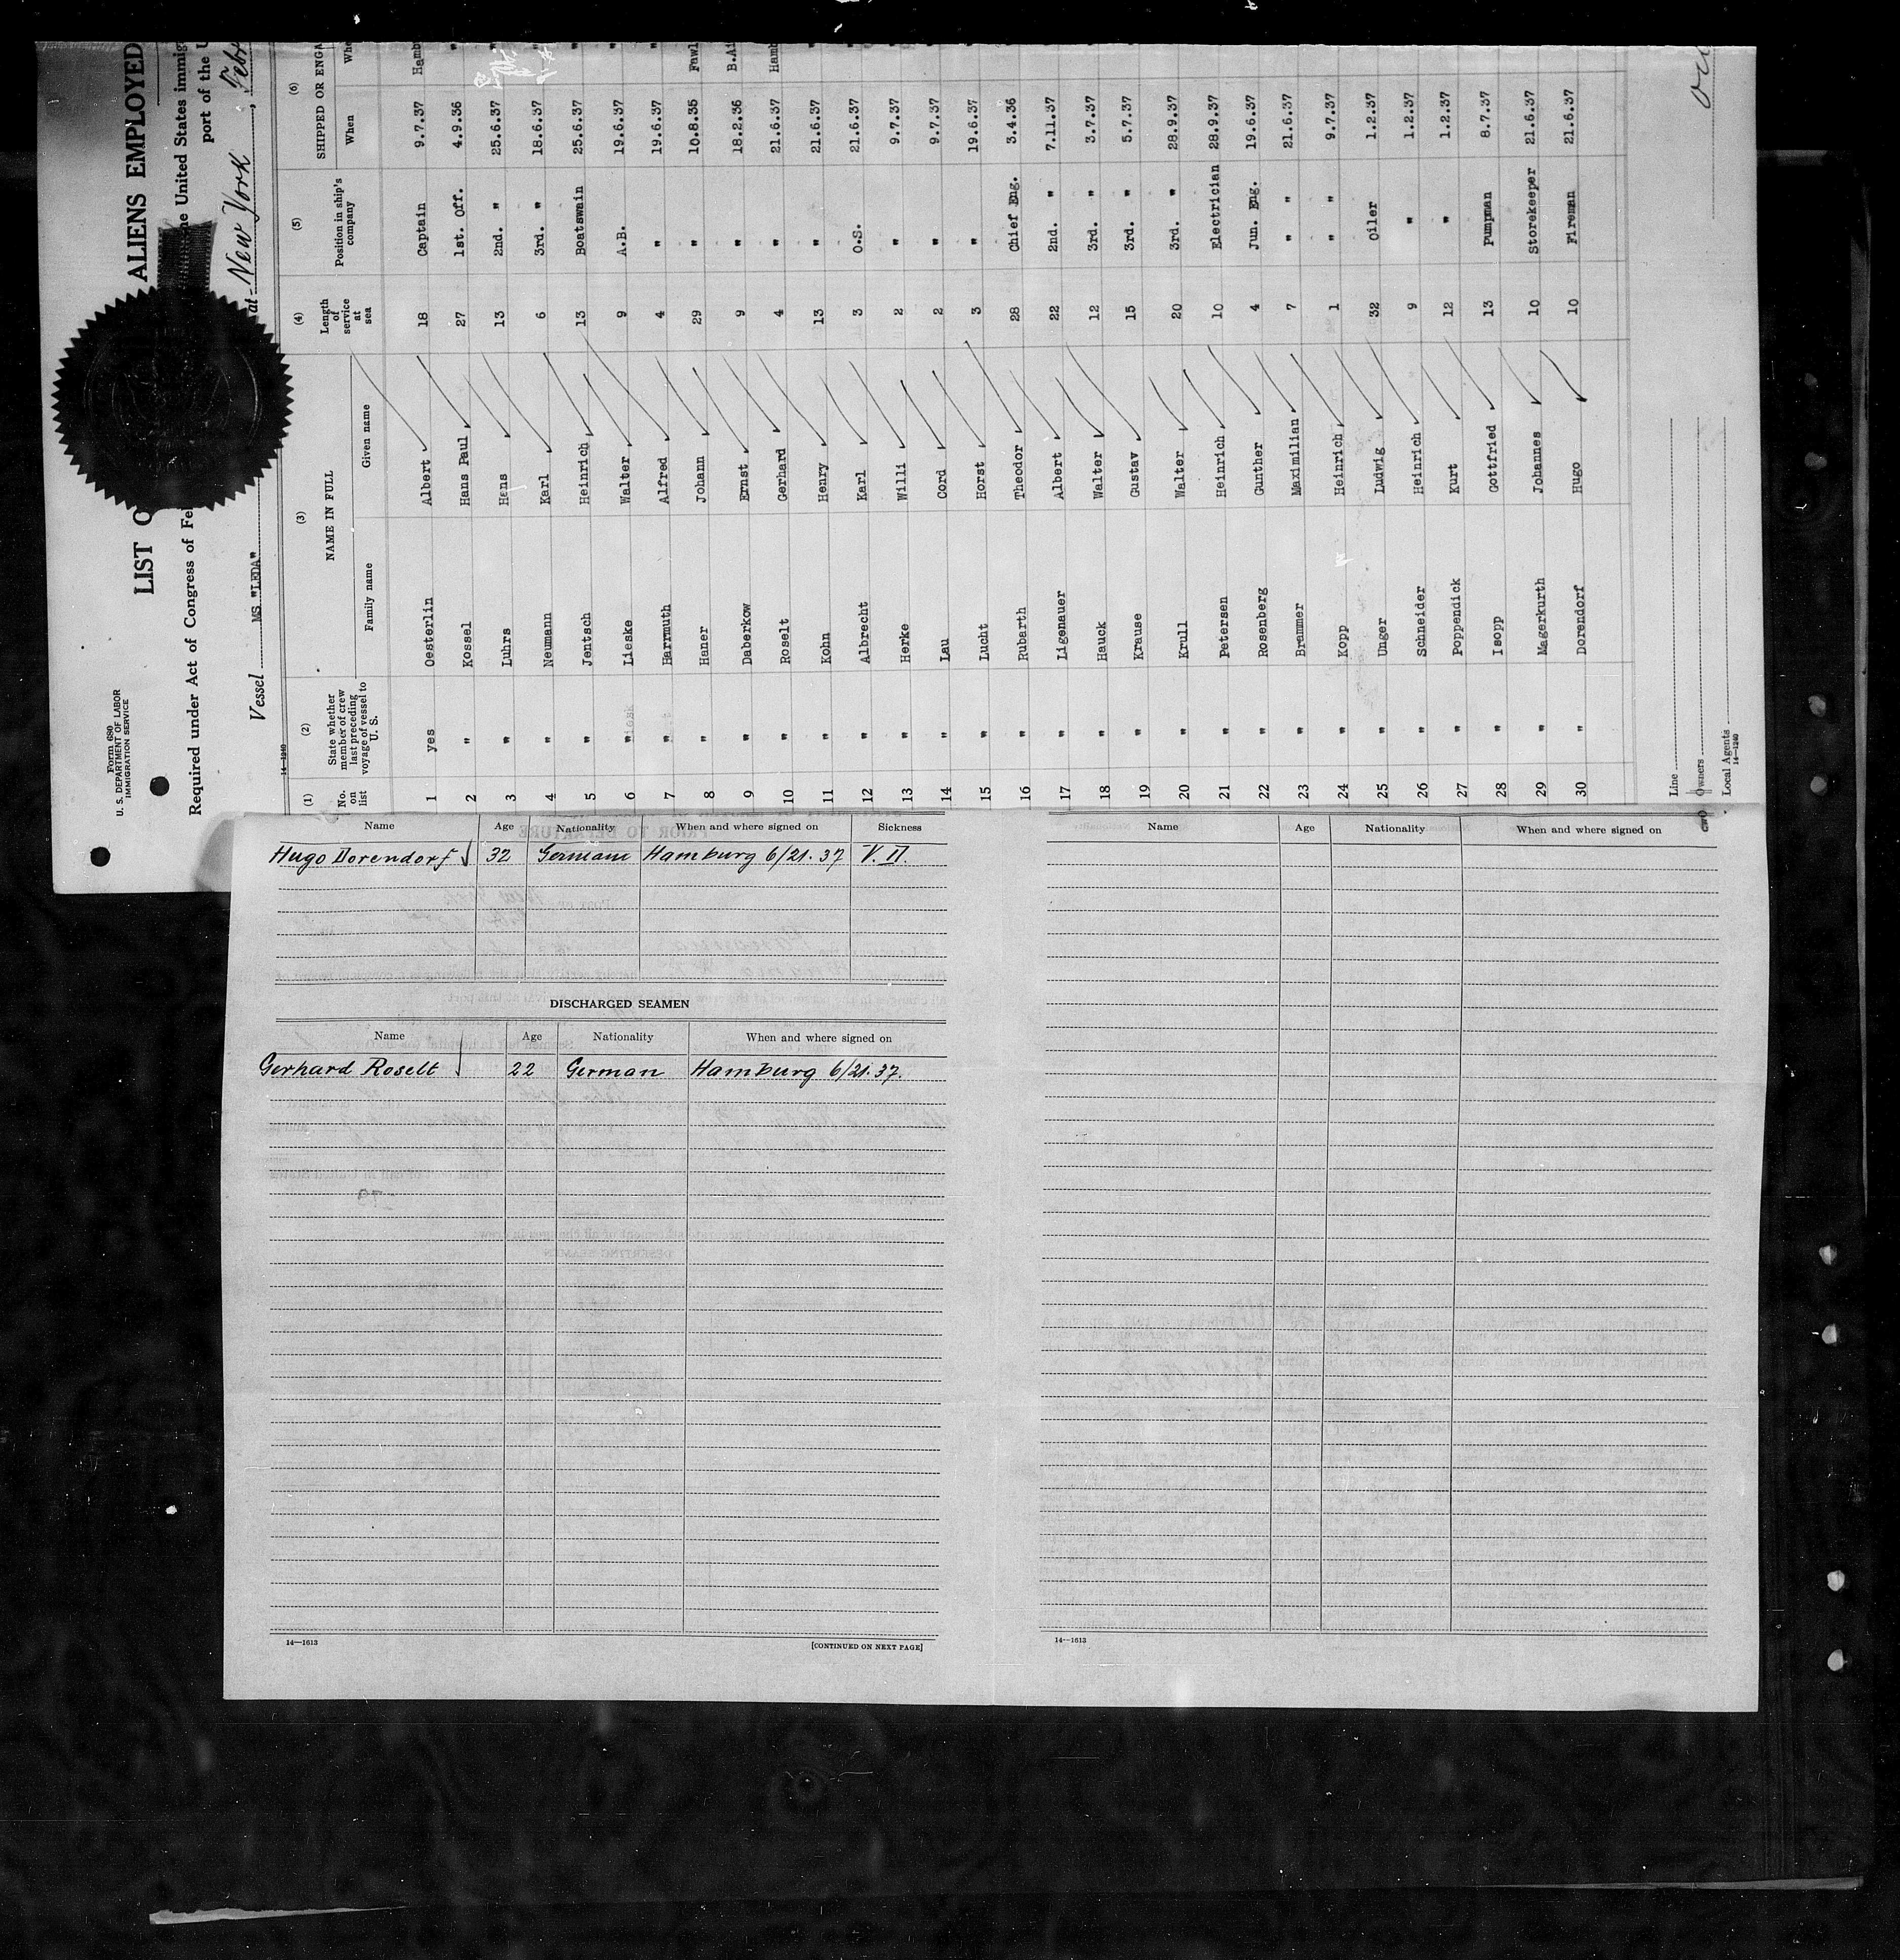 Form 680
U. S. DEPARTMENT OF LABOR
IMMIGRATION SERVICE
LIST ALIENS EMPLOYED
Required under Act of Congress of United States
port of the
Vessel MS "LEDA" at New York, Febr
14—1240
(1) (2) (3) (4) (5) (6)
No. on list
State whether member of crew last preceding voyage of vessel to U. S.
NAME IN FULL
Family name Given name
Length of service at sea
Position in ship's company
SHIPPED OR ENGA
When Whe
1 yes Oesterlin Albert 18 Captain 9.7.37 Hamb
2 " Kossel Hans Paul 27 1st. Off. 4.9.36 "
3 " Luhrs Hans 13 2nd. " 25.6.37 "
4 " Neumann Karl 6 3rd. " 18.6.37 "
5 " Jentsch Heinrich 13 Boatswain 25.6.37 "
6 " Lieske Walter 9 A.B. 19.6.37 "
7 " Harrmuth Alfred 4 " 19.6.37 "
8 " Haner Johann 29 " 10.8.35 Fawl
9 " Daberkow Ernst 9 " 18.2.36 B.Ai
10 " Roselt Gerhard 4 " 21.6.37 Hamb
11 " Kohn Henry 13 " 21.6.37 "
12 " Albrecht Karl 3 O.S. 21.6.37 "
13 " Herke Willi 2 " 9.7.37 "
14 " Lau Cord 2 " 9.7.37 "
15 " Lucht Horst 3 " 19.6.37 "
16 " Rubarth Theodor 28 Chief Eng. 3.4.36 "
17 " Ligenauer Albert 22 2nd. " 7.11.37 "
18 " Hauck Walter 12 3rd. " 3.7.37 "
19 " Krause Gustav 15 3rd. " 5.7.37 "
20 " Krull Walter 20 3rd. " 28.9.37 "
21 " Petersen Heinrich 10 Electrician 28.9.37 "
22 " Rosenberg Gunther 4 Jun. Eng. 19.6.37 "
23 " Brammer Maximilian 7 " " 21.6.37
24 " Kopp Heinrich 1 " " 9.7.37
25 " Unger Ludwig 32 Oiler 1.2.37
26 " Schneider Heinrich 9 " 1.2.37
27 " Poppendick Kurt 12 " 1.2.37
28 " Isopp Gottfried 13 Pumpman 8.7.37
29 " Magerkurth Johannes 10 Storekeeper 21.6.37
30 " Dorendorf Hugo 10 Fireman 21.6.37
Line
Owners
Local Agents
14—1240
Name Age Nationality When and where signed on Sickness
Hugo Dorendorf 32 Germane Hamburg 6/21.37 V. II.
DISCHARGED SEAMEN
Name Age Nationality When and where signed on
Gerhard Roselt 22 German Hamburg 6/21.37.
14—1613 [CONTINUED ON NEXT PAGE]
Name Age Nationality When and where signed on
14—1613